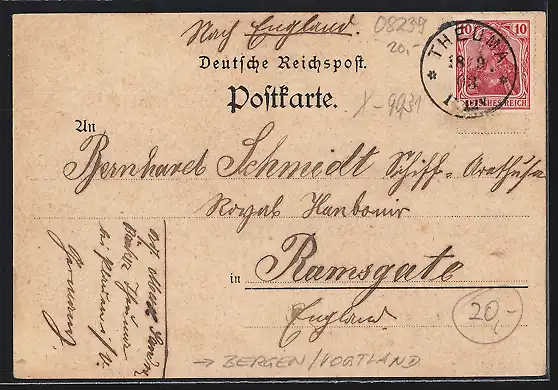 Nach England.
08239
20,-
THEUMA
18 9.
03
10 10
DEUTSCHES REICH
Deutsche Reichspost.
Postkarte.
X-9931
An
Bernhard Schmidt Schiff-Arethusa
Royal Harbour
in Ramsgate
England
Germany
20,-
→ BERGEN/VOGTLAND